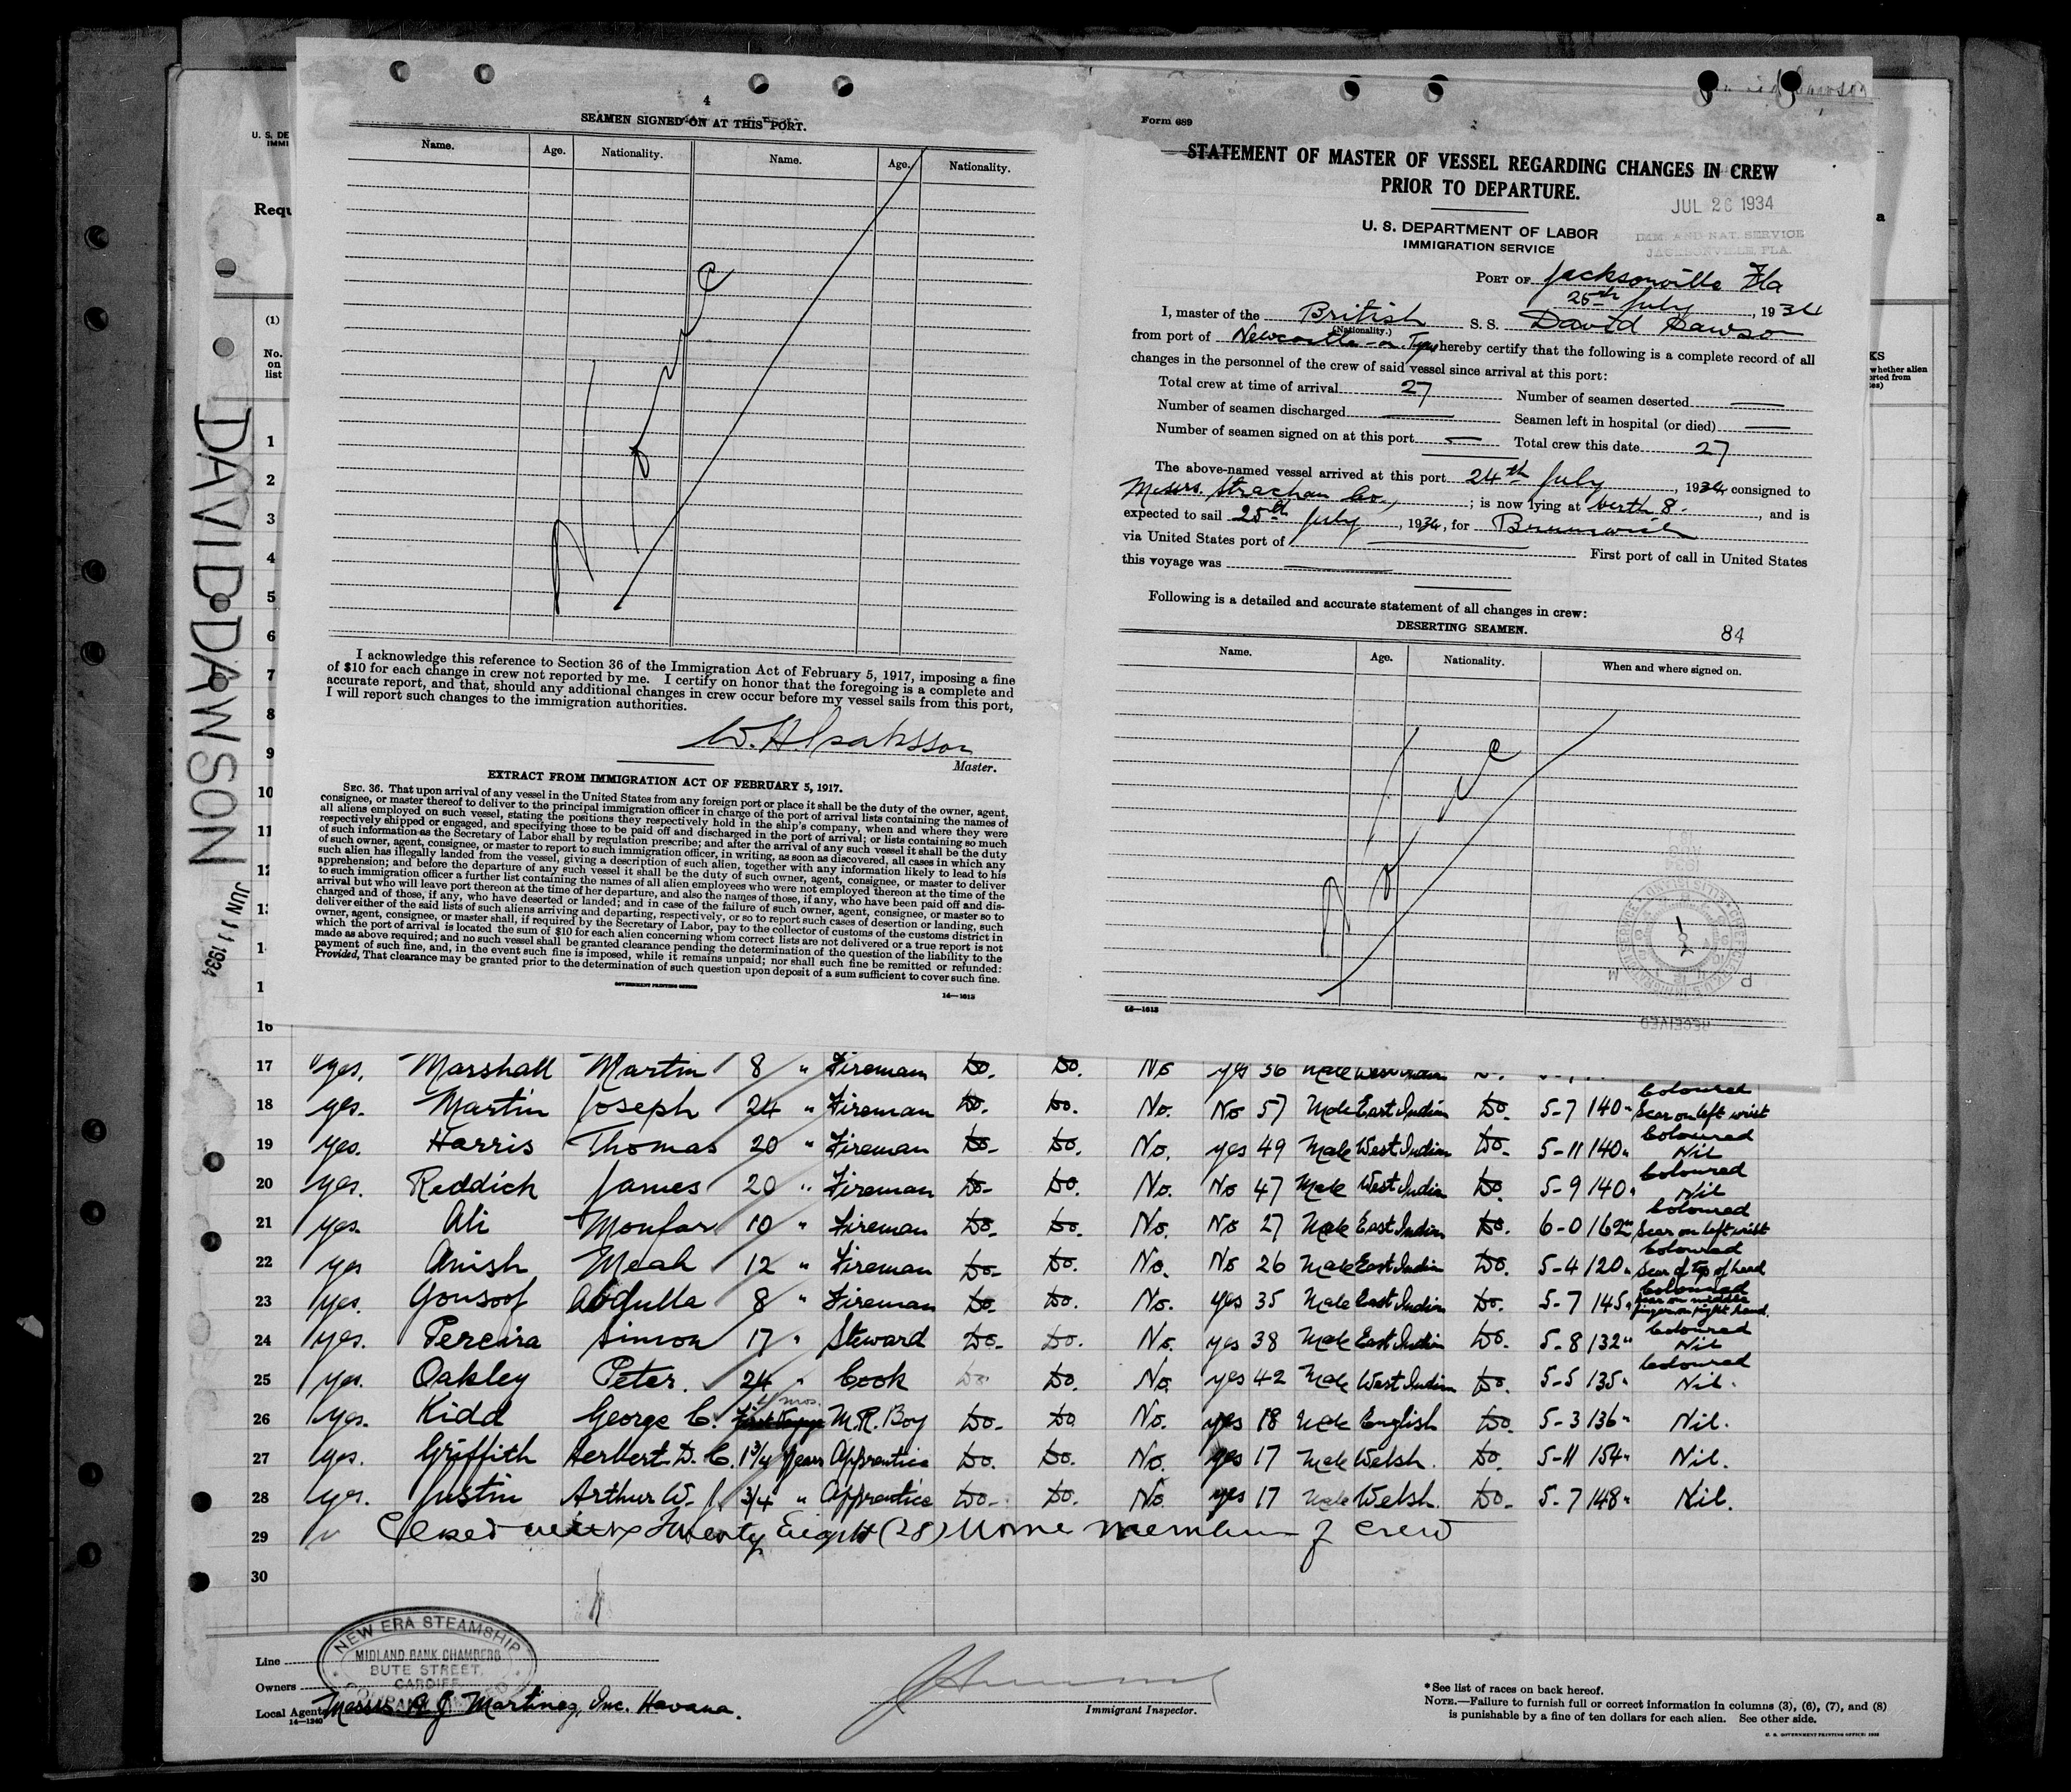 4
SEAMEN SIGNED ON AT THIS PORT.
Name. Age. Nationality. Name. Age. Nationality.
None
I acknowledge this reference to Section 36 of the Immigration Act of February 5, 1917, imposing a fine
of $10 for each change in crew not reported by me. I certify on honor that the foregoing is a complete and
accurate report, and that, should any additional changes in crew occur before my vessel sails from this port,
I will report such changes to the immigration authorities.
Master.
EXTRACT FROM IMMIGRATION ACT OF FEBRUARY 5, 1917.
SEC. 36. That upon arrival of any vessel in the United States from any foreign port or place it shall be the duty of the owner, agent,
consignee, or master thereof to deliver to the principal immigration officer in charge of the port of arrival lists containing the names of
all aliens employed on such vessel, stating the positions they respectively hold in the ship's company, when and where they were
respectively shipped or engaged, and specifying those to be paid off and discharged in the port of arrival; or lists containing so much
of such information as the Secretary of Labor shall by regulation prescribe; and after the arrival of any such vessel it shall be the duty
of such owner, agent, consignee, or master to report to such immigration officer, in writing, as soon as discovered, all cases in which any
such alien has illegally landed from the vessel, giving a description of such alien, together with any information likely to lead to his
apprehension; and before the departure of any such vessel it shall be the duty of such owner, agent, consignee, or master to deliver
to such immigration officer a further list containing the names of all alien employees who were not employed thereon at the time of the
arrival but who will leave port thereon at the time of her departure, and also the names of those, if any, who have been paid off and dis-
charged and of those, if any, who have deserted or landed; and in case of the failure of such owner, agent, consignee, or master so to
deliver either of the said lists of such aliens arriving and departing, respectively, or so to report such cases of desertion or landing, such
owner, agent, consignee, or master shall, if required by the Secretary of Labor, pay to the collector of customs of the customs district in
which the port of arrival is located the sum of $10 for each alien concerning whom correct lists are not delivered or a true report is not
made as above required; and no such vessel shall be granted clearance pending the determination of the question of the liability to the
payment of such fine, and, in the event such fine is imposed, while it remains unpaid; nor shall such fine be remitted or refunded:
Provided, That clearance may be granted prior to the determination of such question upon deposit of a sum sufficient to cover such fine.
GOVERNMENT PRINTING OFFICE
14—1013
Form 689
STATEMENT OF MASTER OF VESSEL REGARDING CHANGES IN CREW
PRIOR TO DEPARTURE.
JUL 26 1934
U. S. DEPARTMENT OF LABOR
IMMIGRATION SERVICE
IMM. AND NAT. SERVICE
JACKSONVILLE, FLA.
PORT OF Jacksonville Fla
25th July, 1934
I, master of the British S. S. David Dawso
(Nationality.)
from port of Newcastle-on-Tyne hereby certify that the following is a complete record of all
changes in the personnel of the crew of said vessel since arrival at this port:
Total crew at time of arrival 27 Number of seamen deserted —
Number of seamen discharged — Seamen left in hospital (or died) —
Number of seamen signed on at this port — Total crew this date 27
The above-named vessel arrived at this port 24th July, 1934, consigned to
Messrs. Strachan Co.,; is now lying at berth 8., and is
expected to sail 25th July, 1934, for Brunswick
via United States port of — First port of call in United States
this voyage was —
Following is a detailed and accurate statement of all changes in crew:
DESERTING SEAMEN.
84
Name. Age. Nationality. When and where signed on.
None
14—1013
RECEIVED
U. S. DE
IMMI
Requ
a
(1)
No.
on
list
KS
whether alien
DAVID DAWSON
JUN 11 1934
1
2
3
4
5
6
7
8
9
10
11
12
13
1
1
16
17 yes. Marshall Martin 8 " Fireman Do. Do. No yes 36 Male West Indian
18 yes. Martin Joseph 24 " Fireman Do. Do. No. No 57 Male East Indian Do. 5-7 140" Coloured Scar on left wrist
19 yes. Harris Thomas 20 " Fireman Do. Do. No. yes 49 Male West Indian Do. 5-11 140" Coloured Nil
20 yes. Reddick James 20 " Fireman Do. Do. No. No 47 Male West Indian Do. 5-9 140" Coloured Nil
21 yes. Ali Monfar 10 " Fireman Do. Do. No. No 27 Male East Indian Do. 6-0 162" Coloured Scar on left wrist
22 yes Anish Meah 12 " Fireman Do. Do. No. No 26 Male East Indian Do. 5-4 120" Coloured Scar of top of head
23 yes. Yousoof Abdulla 8 " Fireman Do. Do. No. yes 35 Male East Indian Do. 5-7 145" Coloured Scar on middle finger on right hand.
24 yes. Pereira Simon 17 " Steward Do. Do. No. yes 38 Male East Indian Do. 5-8 132" Coloured Nil
25 yes. Oakley Peter. 24 " Cook Do. Do. No. yes 42 Male West Indian Do. 5-5 135" Coloured Nil.
26 yes. Kidd George C. mos. M.R. Boy Do. Do No. yes 18 Male English Do. 5-3 136" Nil.
27 yes. Griffith Herbert D. C. 1 3/4 Years Apprentice Do. Do. No. yes 17 Male Welsh. Do. 5-11 154" Nil.
28 yes. Justin Arthur W. J. 3/4 " Apprentice Do. Do. No. yes 17 Male Welsh. Do. 5-7 148" Nil.
29 Closed with Twenty Eight (28) members of crew
30
NEW ERA STEAMSHIP
MIDLAND BANK CHAMBERS
BUTE STREET,
CARDIFF
Line
Owners
Local Agents Messrs A J Martinez, Inc. Havana.
14—1240
Immigrant Inspector.
*See list of races on back hereof.
NOTE.—Failure to furnish full or correct information in columns (3), (6), (7), and (8)
is punishable by a fine of ten dollars for each alien. See other side.
U. S. GOVERNMENT PRINTING OFFICE: 1932